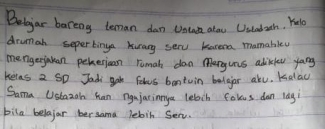 Belajar bareng teman dan Ustad atau Ustadzah. Kalo
dirumah sepertinya kurang seru karena mamahku
mengerjakan pekerjaan rumah dan Mengurus adikku yang
kelas 2 SD Jadi gak fokus bantuin belajar aku. Kalau
Sama Ustazah kan ngajarinnya lebih fokus dan lagi
bisa belajar bersama lebih seru.